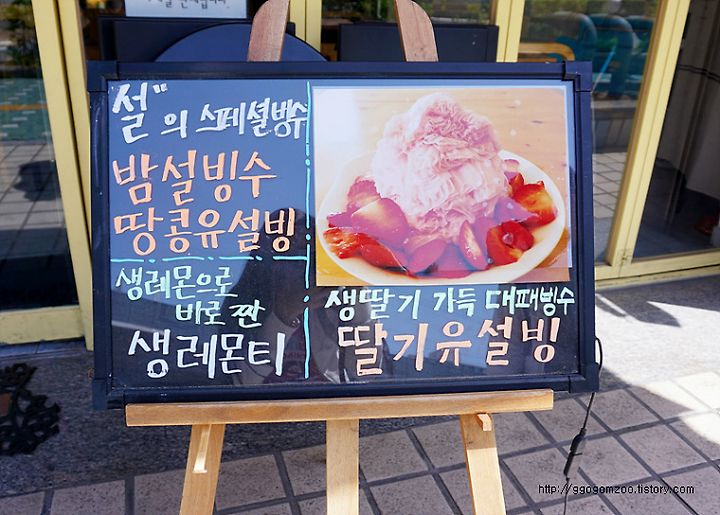 설"의 스페셜빙수
밤설빙수
땅콩유설빙
생레몬으로
바로 짠
생레몬티
생딸기 가득 대패빙수
딸기유설빙
http://ggogomzoo.tistory.com